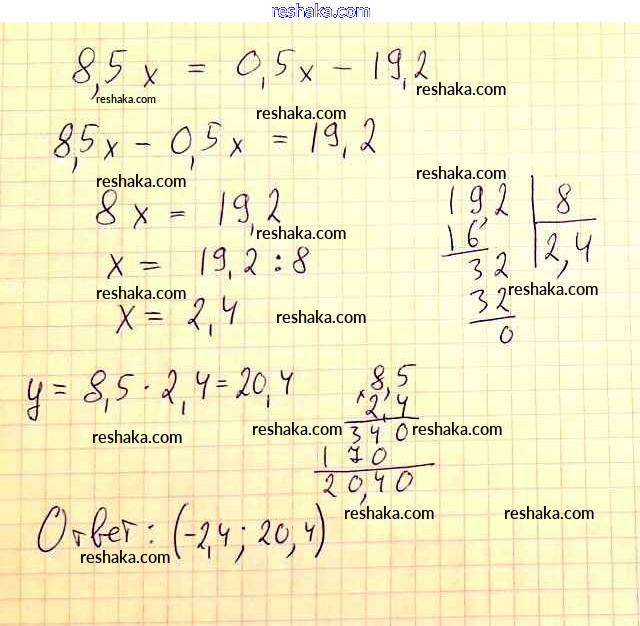 reshaka.com
8,5x = 0,5x - 19,2
reshaka.com reshaka.com reshaka.com
8,5x - 0,5x = 19,2
reshaka.com reshaka.com
8x = 19,2
reshaka.com
x = 19,2 : 8
reshaka.com
x = 2,4
reshaka.com
19,2 | 8
16 | 2,4
32
reshaka.com
32
0
y = 8,5 · 2,4 = 20,4
reshaka.com reshaka.com
8,5
× 2,4
340 reshaka.com
170
20,40
Ответ: (-2,4; 20,4)
reshaka.com reshaka.com reshaka.com